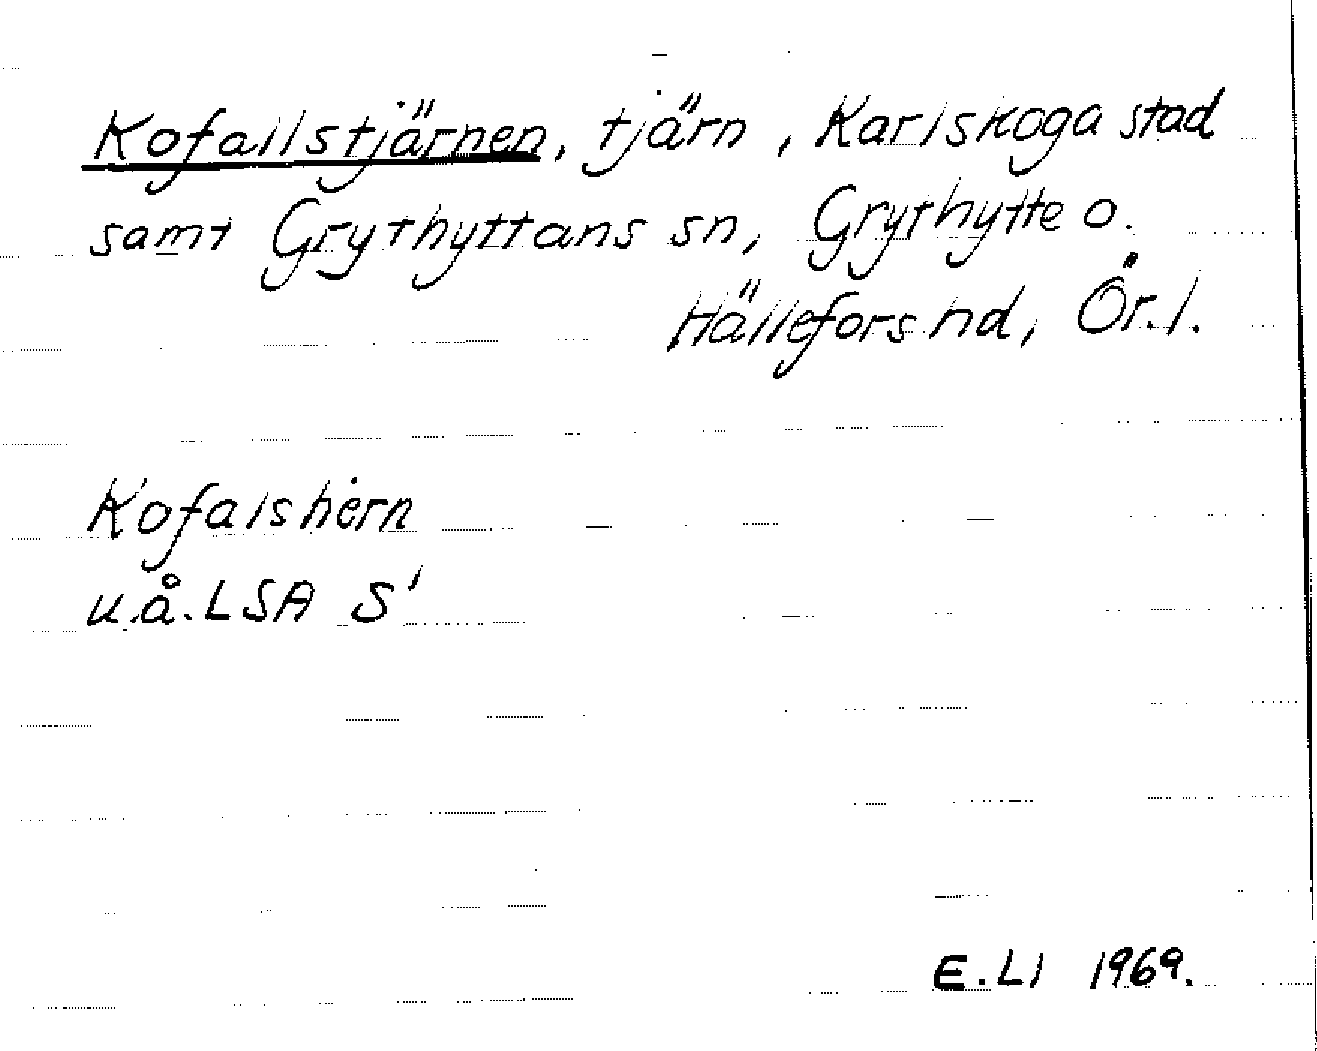 Kofallstjärnen, tjärn, Karlskoga stad
samt Grythyttans sn, Grythytte o.
Hällefors hd, Ör.l.
Kofalshern
u.å. LSA S'
E.LI 1969.